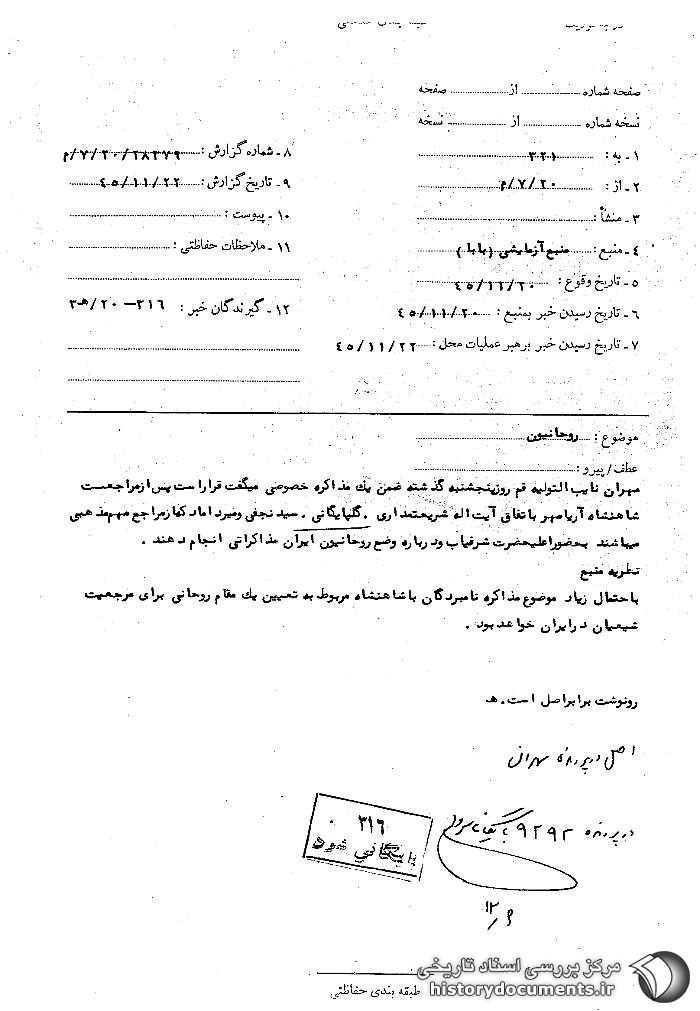 طبقه بندی حفاظتی
صفحه شماره ........ از ........ صفحه
نسخه شماره ........ از ........ نسخه
۱ ـ به : ۳۲۱
۲ ـ از : ۲۰/۷/م
۳ ـ منشأ :
۴ ـ منبع : منبع آزمایشی ( بابا )
۵ ـ تاریخ وقوع : ۴۵/۱۱/۲۰
۶ ـ تاریخ رسیدن خبر بمنبع : ۴۵/۱۱/۲۰
۷ ـ تاریخ رسیدن خبر برهبر عملیات محل : ۴۵/۱۱/۲۲
۸ ـ شماره گزارش : ۲۸۳۷۹/۲۰/۷/م
۹ ـ تاریخ گزارش : ۴۵/۱۱/۲۲
۱۰ ـ پیوست :
۱۱ ـ ملاحظات حفاظتی :
۱۲ ـ گیرندگان خبر : ۳۱۶ – ۲۰/ه‍۳
موضوع : روحانیون
عطف/پیرو :
مهران نایب التولیه قم روزپنجشنبه گذشته ضمن یك مذاکره خصوصی میگفت قراراست پس ازمراجعت
شاهنشاه آریامهر باتفاق آیت اله شریعتمداری . گلپایگانی . سید نجفی ومیرداماد کهازمراجع مهم‌مذهبی
میباشند بحضوراعلیحضرت شرفیاب ودرباره وضع روحانیون ایران مذاکراتی انجام دهند .
نظریه منبع
باحتمال زیاد موضوع مذاکره نامبردگان باشاهنشاه مربوط به تعیین یك مقام روحانی برای مرجعیت
شیعیان درایران خواهد بود .
رونوشت برابراصل است . ه‍
اصل در پرونده مهران
در پرونده ۹۲۹۲
۳۱۶
بایگانی شود
طبقه بندی حفاظتی
مرکز بررسی اسناد تاریخی
historydocuments.ir